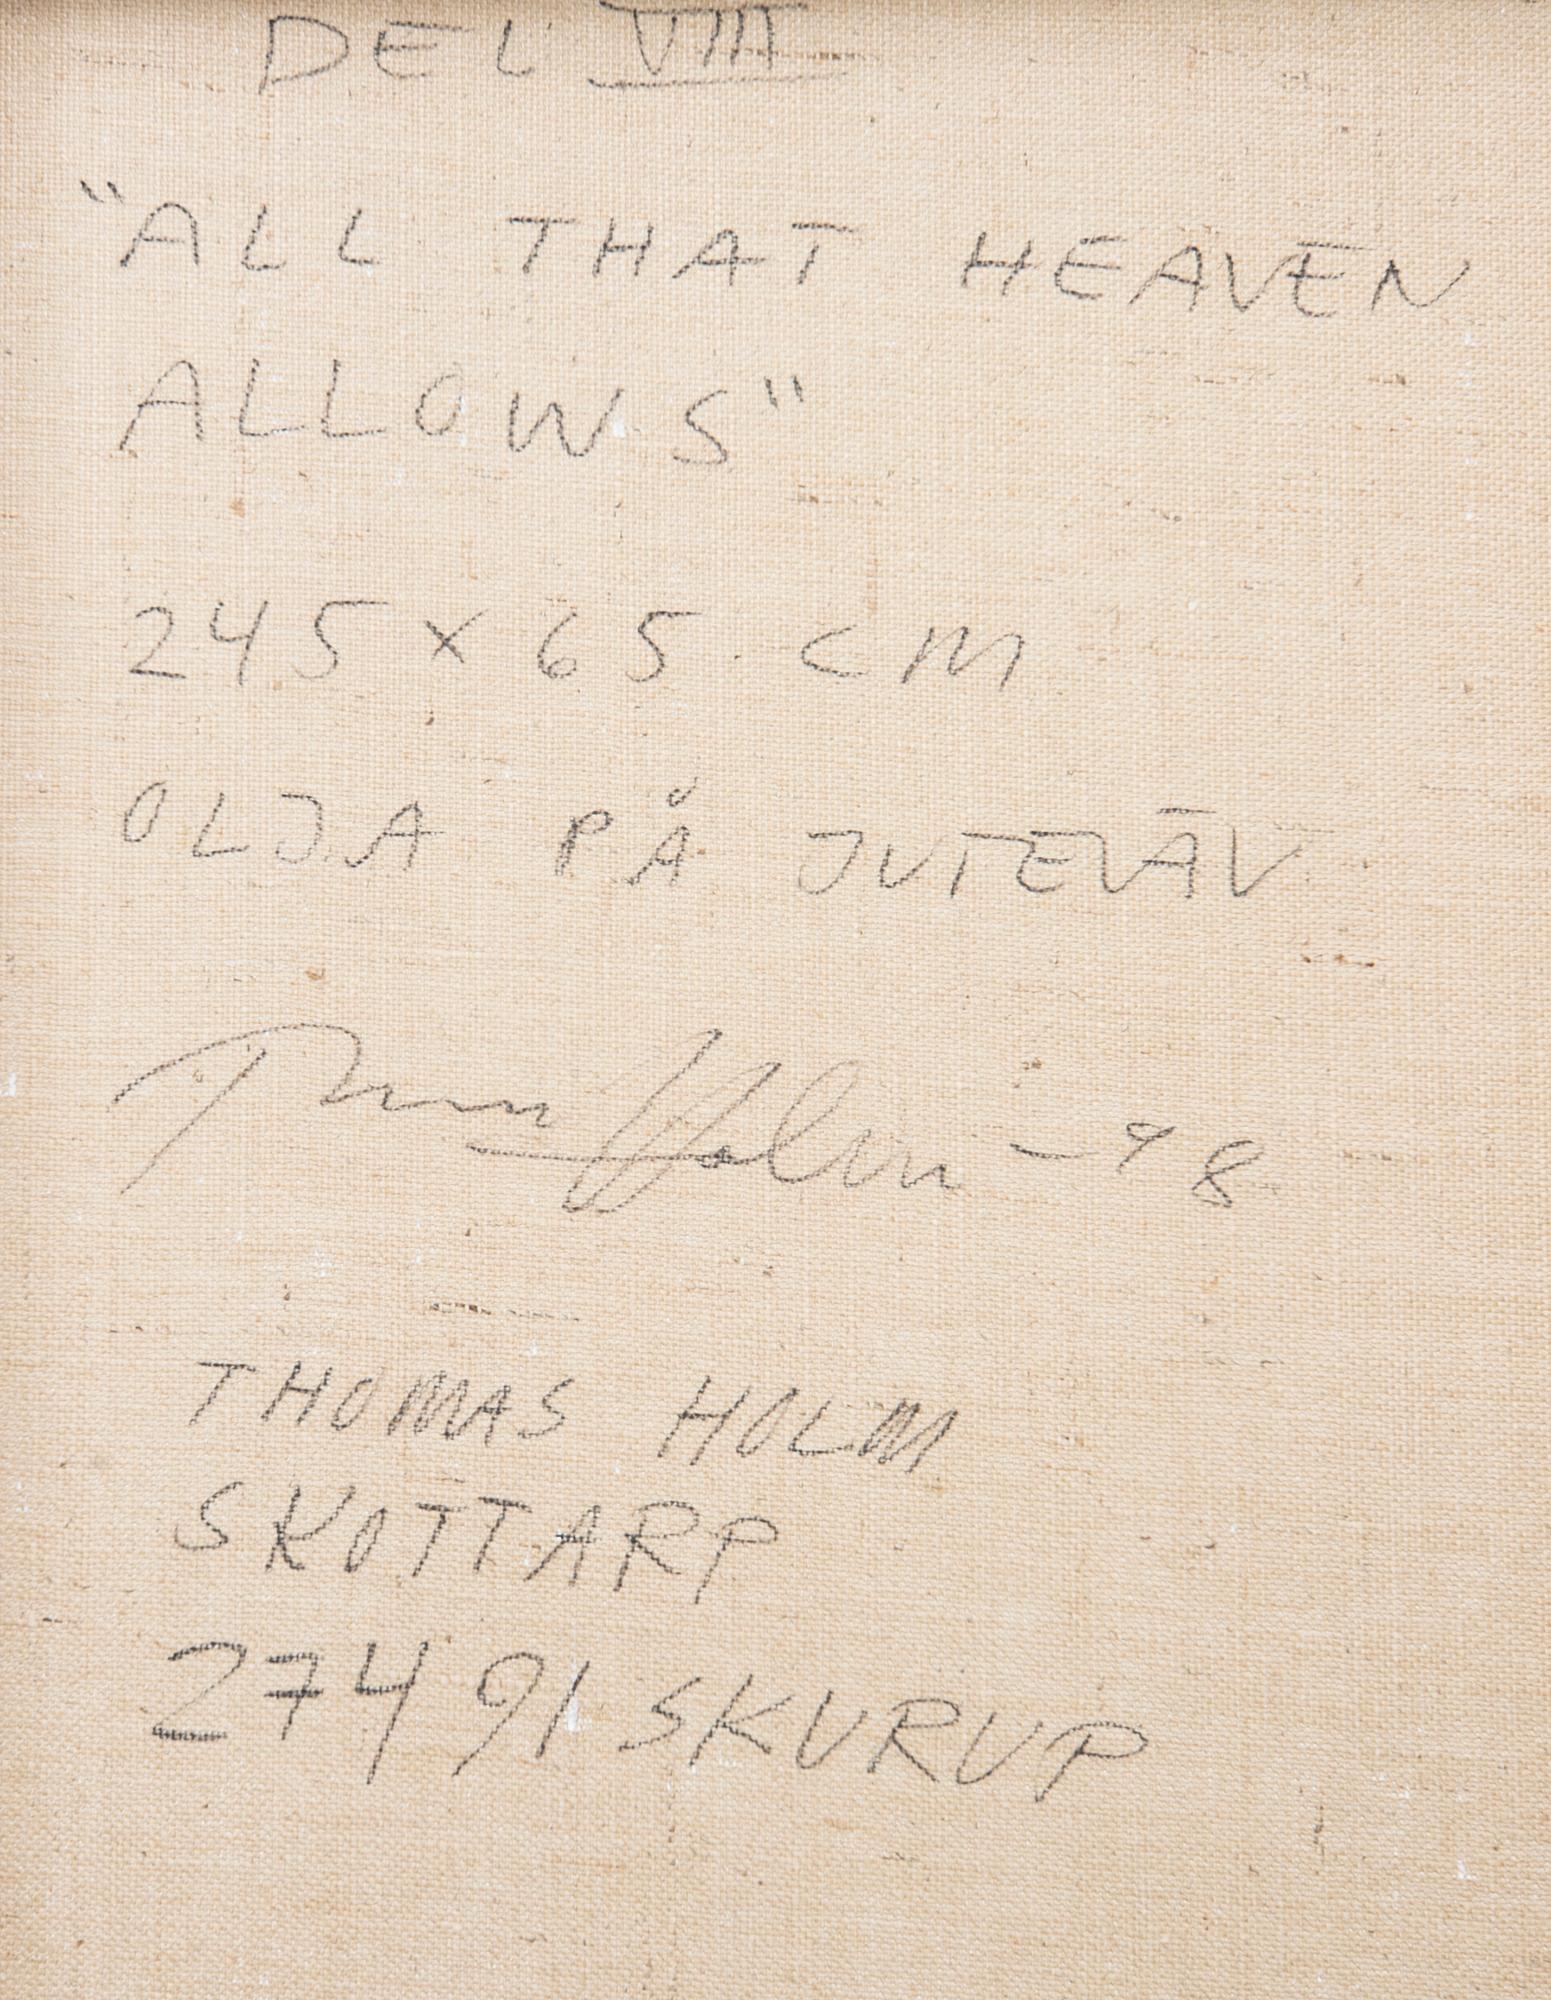 DEL VIII
"ALL THAT HEAVEN
ALLOWS"
245 x 65 cm
OLJA PÅ JUTEVÄV
Thomas Holm -98
THOMAS HOLM
SKOTTARP
274 91 SKURUP